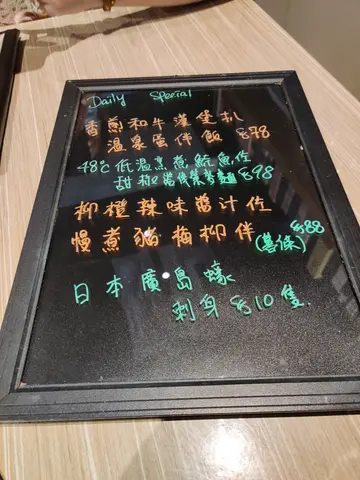 Daily Special
香煎和牛漢堡扒
溫泉蛋伴飯 $98
48°c 低溫烹煮魚佐
甜 醬伴 $98
柳橙辣味醬汁佐
慢煮豬梅柳伴(薯條) $88
日本廣島蠔
刺身 $10隻